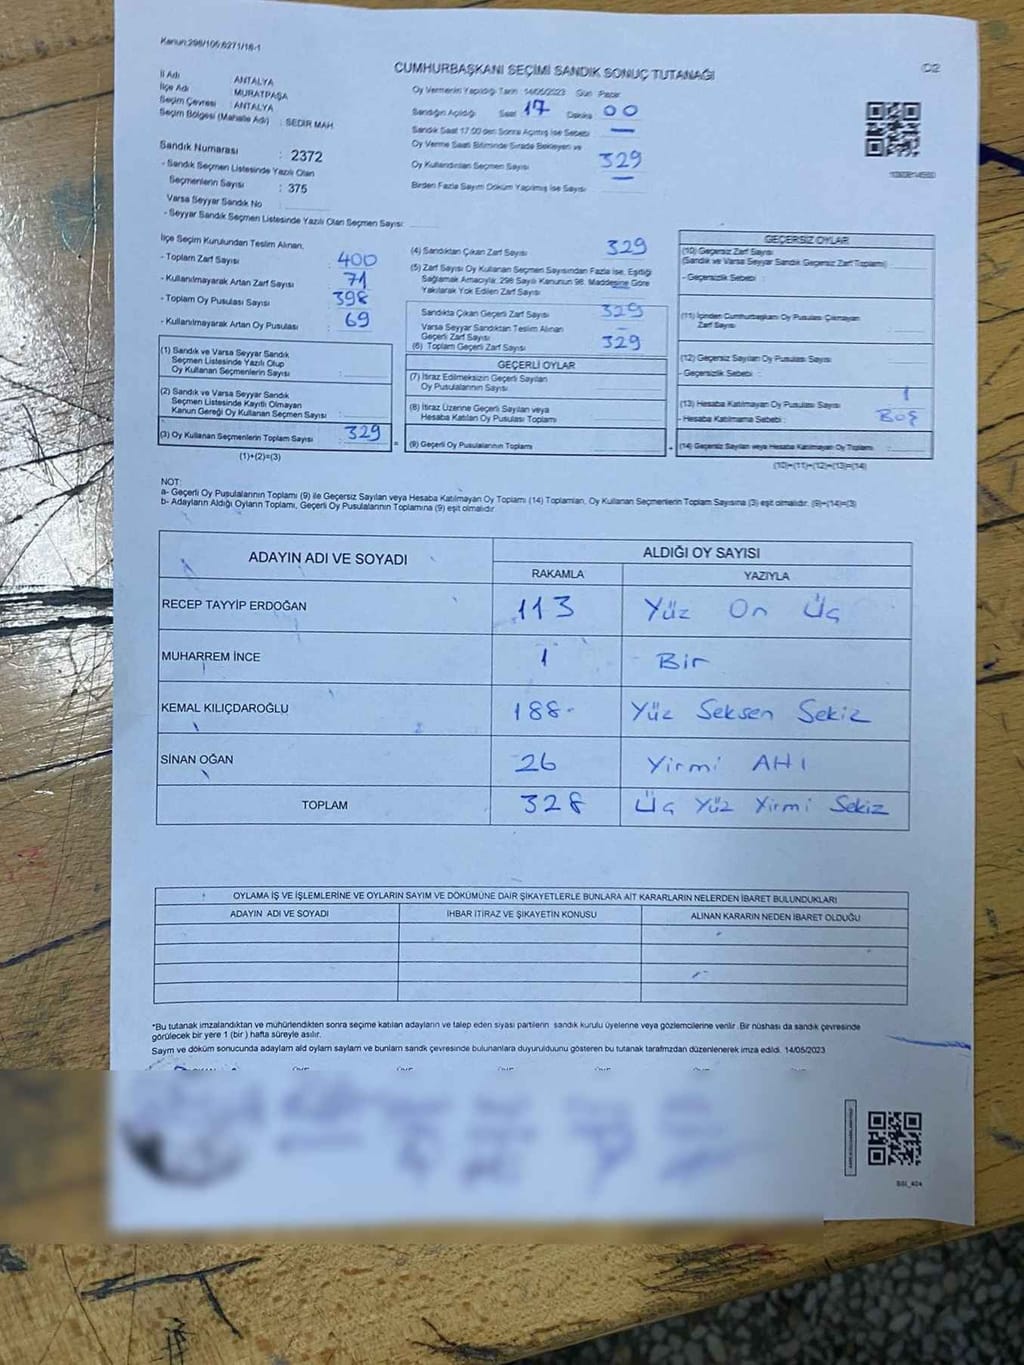 Kanun:298/106;6271/18-1
CUMHURBAŞKANI SEÇİMİ SANDIK SONUÇ TUTANAĞI
İl Adı ANTALYA
İlçe Adı : MURATPAŞA
Seçim Çevresi : ANTALYA
Seçim Bölgesi (Mahalle Adı) : SEDİR MAH.
Sandık Numarası : 2372
- Sandık Seçmen Listesinde Yazılı Olan
Seçmenlerin Sayısı : 375
Varsa Seyyar Sandık No
- Seyyar Sandık Seçmen Listesinde Yazılı Olan Seçmen Sayısı:
Oy Vermenin Yapıldığı Tarih : 14/05/2023 Gün : Pazar
Sandığın Açıldığı Saat 17 Dakika 00
Sandık Saat 17:00'den Sonra Açılmış İse Sebebi —
Oy Verme Saati Bitiminde Sırada Bekleyen ve
Oy Kullandırılan Seçmen Sayısı 329
Birden Fazla Sayım Döküm Yapılmış İse Sayısı
İlçe Seçim Kurulundan Teslim Alınan,
- Toplam Zarf Sayısı : 400
- Kullanılmayarak Artan Zarf Sayısı : 71
- Toplam Oy Pusulası Sayısı : 398
- Kullanılmayarak Artan Oy Pusulası : 69
(1) Sandık ve Varsa Seyyar Sandık
Seçmen Listesinde Yazılı Olup
Oy Kullanan Seçmenlerin Sayısı :
(2) Sandık ve Varsa Seyyar Sandık
Seçmen Listesinde Kayıtlı Olmayan
Kanun Gereği Oy Kullanan Seçmen Sayısı :
(3) Oy Kullanan Seçmenlerin Toplam Sayısı : 329
(1)+(2)=(3)
(4) Sandıktan Çıkan Zarf Sayısı 329
(5) Zarf Sayısı Oy Kullanan Seçmen Sayısından Fazla İse, Eşitliği
Sağlamak Amacıyla; 298 Sayılı Kanunun 98. Maddesine Göre
Yakılarak Yok Edilen Zarf Sayısı
Sandıkta Çıkan Geçerli Zarf Sayısı 329
Varsa Seyyar Sandıktan Teslim Alınan
Geçerli Zarf Sayısı –
(6) Toplam Geçerli Zarf Sayısı 329
GEÇERLİ OYLAR
(7) İtiraz Edilmeksizin Geçerli Sayılan
Oy Pusulalarının Sayısı
(8) İtiraz Üzerine Geçerli Sayılan veya
Hesaba Katılan Oy Pusulası Toplamı
= (9) Geçerli Oy Pusulalarının Toplamı
GEÇERSİZ OYLAR
(10) Geçersiz Zarf Sayısı
(Sandık ve Varsa Seyyar Sandık Geçersiz Zarf Toplamı)
- Geçersizlik Sebebi :
(11) İçinden Cumhurbaşkanı Oy Pusulası Çıkmayan
Zarf Sayısı
(12) Geçersiz Sayılan Oy Pusulası Sayısı
- Geçersizlik Sebebi :
(13) Hesaba Katılmayan Oy Pusulası Sayısı 1
- Hesaba Katılmama Sebebi : Boş
+ (14) Geçersiz Sayılan veya Hesaba Katılmayan Oy Toplamı
(10)+(11)+(12)+(13)=(14)
NOT:
a- Geçerli Oy Pusulalarının Toplamı (9) ile Geçersiz Sayılan veya Hesaba Katılmayan Oy Toplamı (14) Toplamları, Oy Kullanan Seçmenlerin Toplam Sayısına (3) eşit olmalıdır. (9)+(14)=(3)
b- Adayların Aldığı Oyların Toplamı, Geçerli Oy Pusulalarının Toplamına (9) eşit olmalıdır
ADAYIN ADI VE SOYADI ALDIĞI OY SAYISI
RAKAMLA YAZIYLA
RECEP TAYYİP ERDOĞAN 113 Yüz On Üç
MUHARREM İNCE 1 Bir
KEMAL KILIÇDAROĞLU 188- Yüz Seksen Sekiz
SİNAN OĞAN 26 Yirmi Altı
TOPLAM 328 Üç Yüz Yirmi Sekiz
OYLAMA İŞ VE İŞLEMLERİNE VE OYLARIN SAYIM VE DÖKÜMÜNE DAİR ŞİKAYETLERLE BUNLARA AİT KARARLARIN NELERDEN İBARET BULUNDUKLARI
ADAYIN ADI VE SOYADI İHBAR İTİRAZ VE ŞİKAYETİN KONUSU ALINAN KARARIN NEDEN İBARET OLDUĞU
*Bu tutanak imzalandıktan ve mühürlendikten sonra seçime katılan adayların ve talep eden siyasi partilerin sandık kurulu üyelerine veya gözlemcilerine verilir. Bir nüshası da sandık çevresinde
görülecek bir yere 1 (bir) hafta süreyle asılır.
Sayım ve döküm sonucunda adaylarn ald oylarn sayları ve bunların sandk çevresinde bulunanlara duyurulduunu gösteren bu tutanak tarafmzdan düzenlenerek imza edildi. 14/05/2023